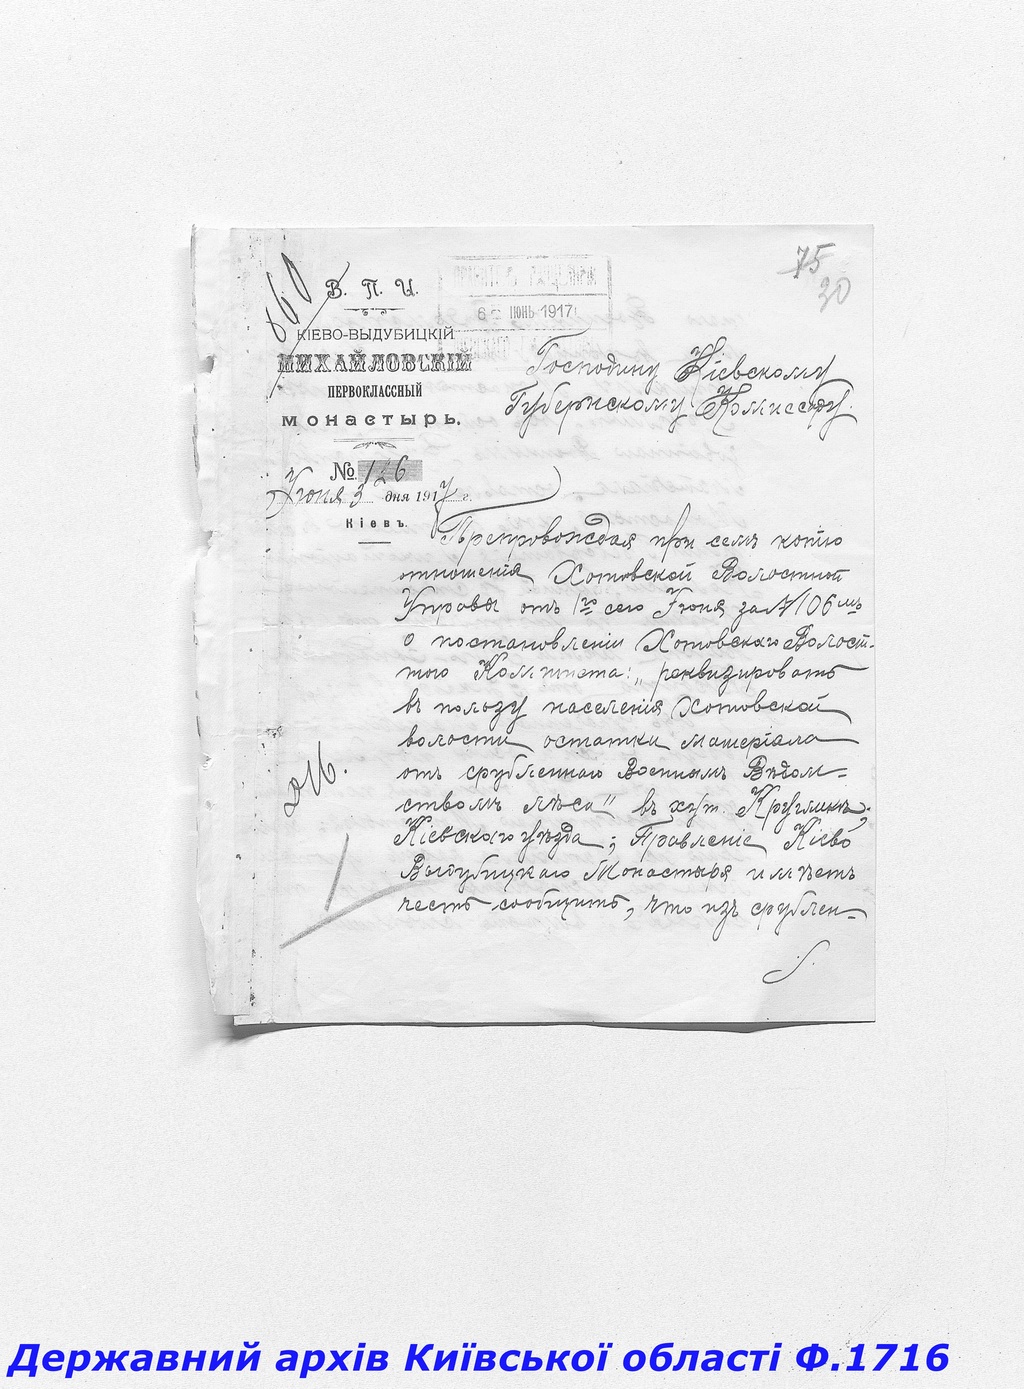 75
30
660
В. П. И.
КІЕВО-ВЫДУБИЦКІЙ
МИХАЙЛОВСКІЙ
ПЕРВОКЛАССНЫЙ
монастырь.
№ 126
Іюня 3 дня 1917 г.
Кіевъ.
6 ІЮНЬ 1917
Господину Кіевскому
Губернскому Комиссару.
Препровождая при семъ копію
отношенія Хотовской Волостной
Управы отъ 1го сего Іюня за № 106мъ
о постановленіи Хотовскаго Волост-
ного Комитета: „реквизировать
въ пользу населенія Хотовской
волости остатки матеріала
отъ срубленнаго Военнымъ Вѣдом-
ствомъ лѣса" въ хут. Кругликъ,
Кіевскаго уѣзда; Правленіе Кіево
Выдубицкаго Монастыря имѣетъ
честь сообщить, что изъ срублен-
Державний архів Київської області Ф.1716